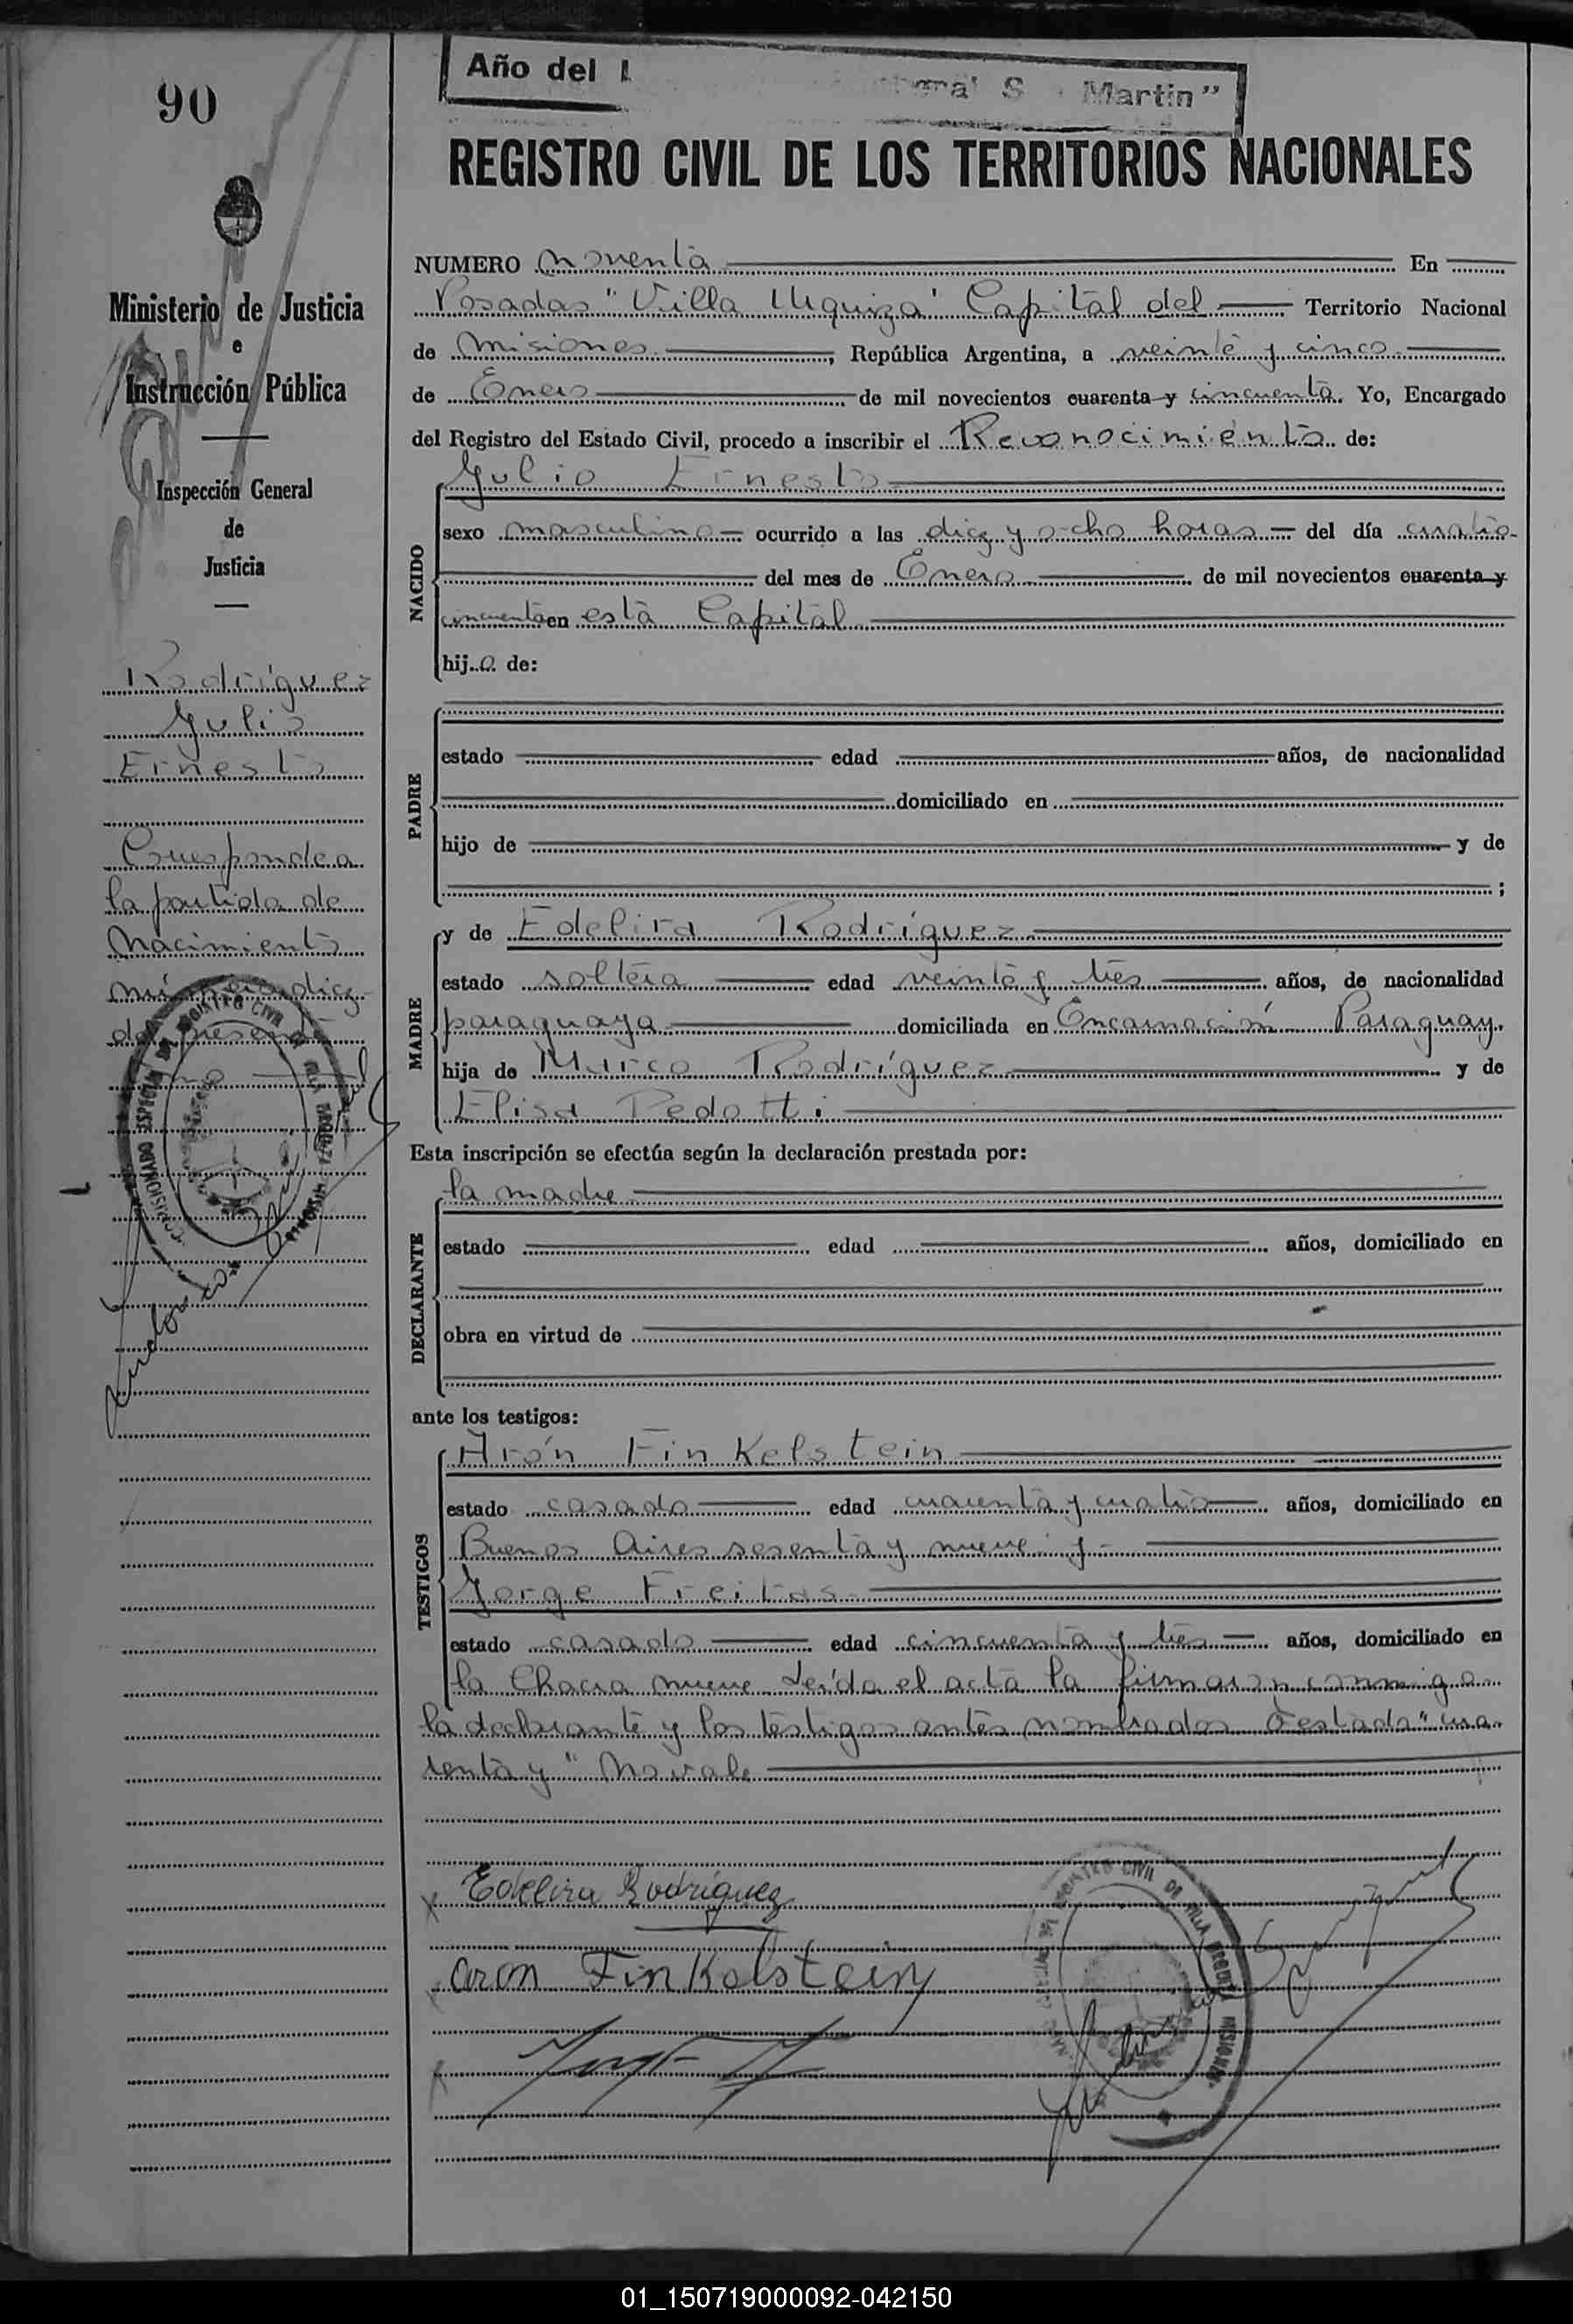 90
Año del L
General S Martin"
REGISTRO CIVIL DE LOS TERRITORIOS NACIONALES
Ministerio de Justicia
e
Instrucción Pública
Inspección General
de
Justicia
Rodríguez
Julio
Ernesto
Corresponde a
la partida de
Nacimiento
diez
del presente
NUMERO Noventa En
Posadas "Villa Urquiza" Capital del Territorio Nacional
de Misiones, República Argentina, a veinte y cinco
de Enero de mil novecientos cuarenta y cincuenta. Yo, Encargado
del Registro del Estado Civil, procedo a inscribir el Reconocimiento de:
NACIDO
Julio Ernesto
sexo masculino ocurrido a las diez y ocho horas del día cuatro
del mes de Enero de mil novecientos cuarenta y
cincuenta en esta Capital
hijo de:
PADRE
estado edad años, de nacionalidad
domiciliado en
hijo de y de
;
MADRE
y de Edelira Rodríguez
estado soltera edad veinte y tres años, de nacionalidad
paraguaya domiciliada en Encarnación Paraguay.
hija de Marco Rodríguez y de
Elisa Pedotti
Esta inscripción se efectúa según la declaración prestada por:
DECLARANTE
la madre
estado edad años, domiciliado en
obra en virtud de
ante los testigos:
TESTIGOS
Arón Finkelstein
estado casado edad cuarenta y cuatro años, domiciliado en
Buenos Aires sesenta y nueve y
Jorge Freitas
estado casado edad cincuenta y tres años, domiciliado en
la Chacra nueve Leída el acta la firmaron conmigo
la declarante y los testigos antes nombrados Testado "cua
renta y" No vale
Edelira Rodríguez
aron Finkelstein
01_150719000092-042150